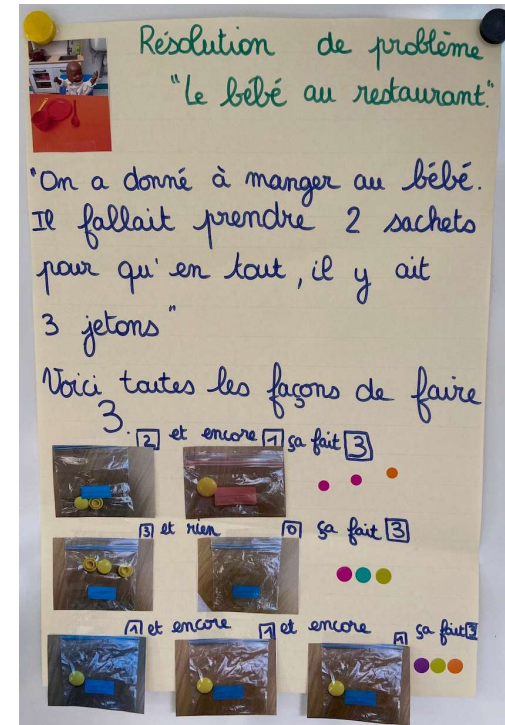 Résolution de problème
"Le bébé au restaurant."
"On a donné à manger au bébé.
Il fallait prendre 2 sachets
pour qu'en tout, il y ait
3 jetons"
Voici toutes les façons de faire
3.
2 et encore 1 ça fait 3
3 et rien 0 ça fait 3
1 et encore 1 et encore 1 ça fait 3